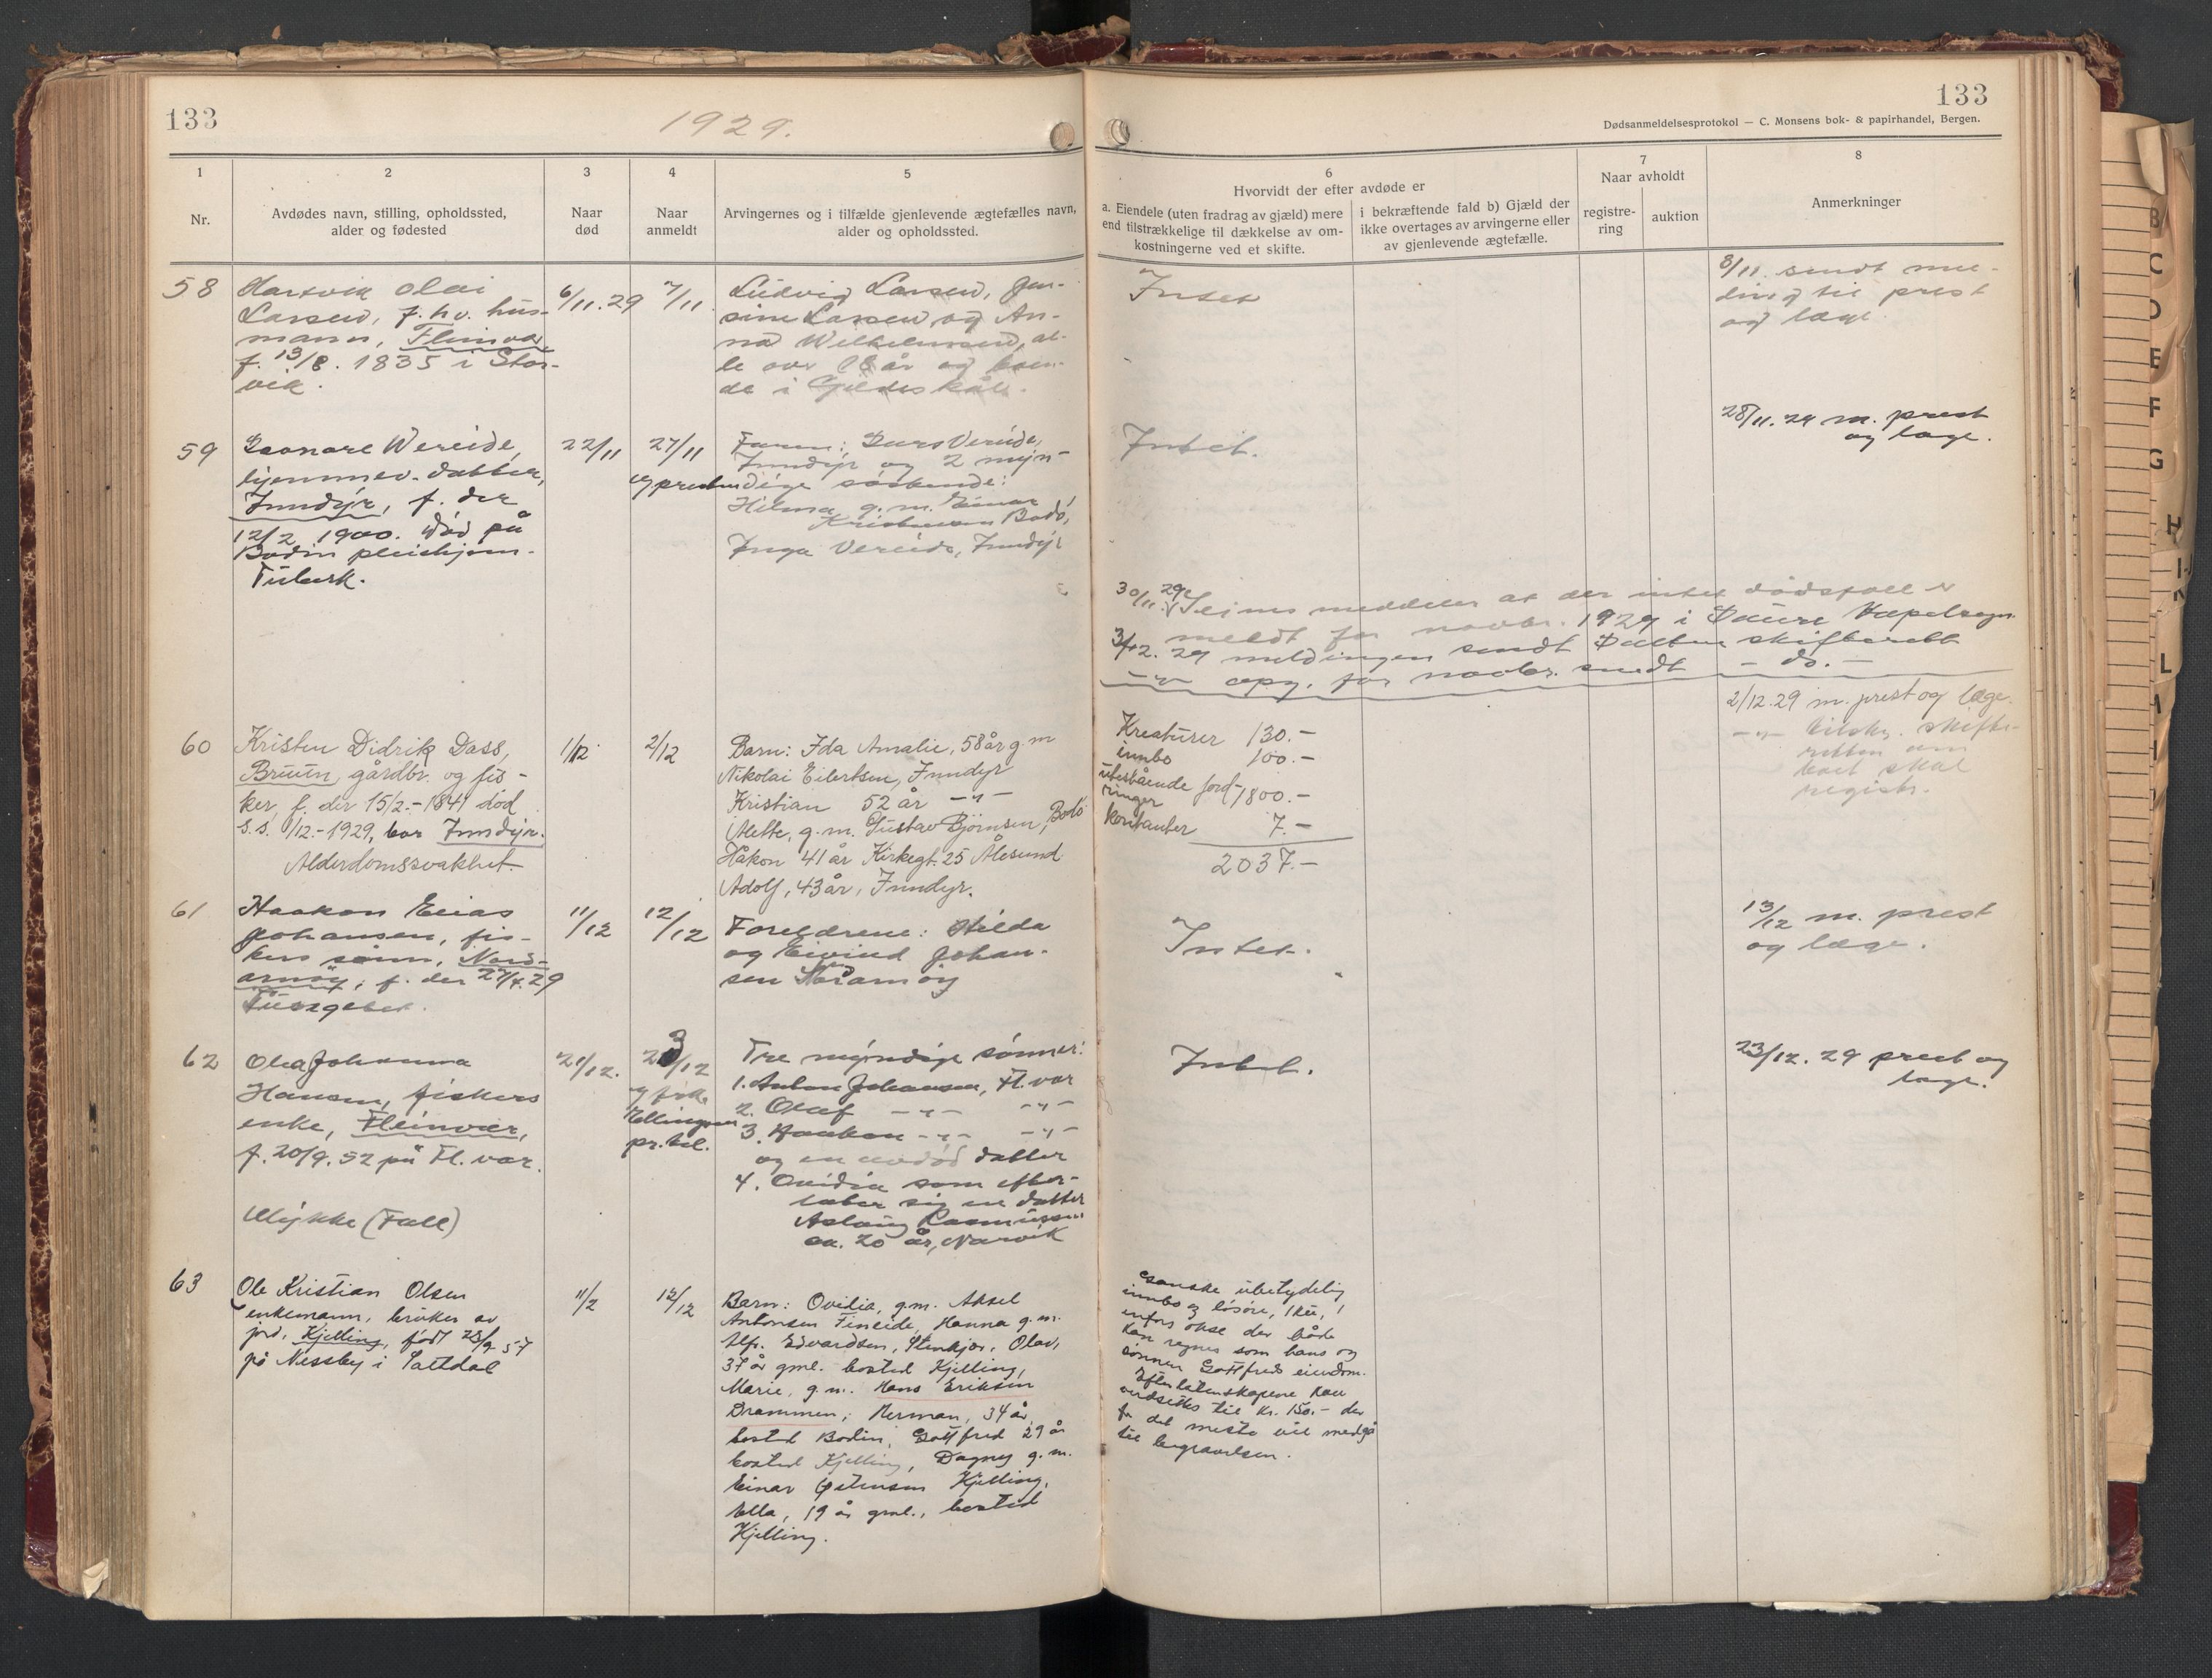 133
1929.
133
Dødsanmeldelsesprotokol — C. Monsens bok- & papirhandel, Bergen.
1
2
3
4
5
6
7
8
Nr.
Avdødes navn, stilling, opholdssted,
alder og fødested
Naar
død
Naar
anmeldt
Arvingernes og i tilfælde gjenlevende ægtefælles navn,
alder og opholdssted.
Hvorvidt der efter avdøde er
a. Eiendele (uten fradrag av gjæld) mere
end tilstrækkelige til dækkelse av om-
kostningerne ved et skifte.
i bekræftende fald b) Gjæld der
ikke overtages av arvingerne eller
av gjenlevende ægtefælle.
Naar avholdt
registre-
ring
auktion
Anmerkninger
58
Hartvik Olai
Larsen, f. hv. hus-
mann, Fleinvær
f. 13/8. 1835 i Stor-
vik.
6/11.29
7/11
Ludvig Larsen, Jen-
sine Larsen og An-
na Wilhelmsen, al-
le over 18 år og boen-
de i Gildeskål.
Intet
8/11. sendt mel-
ding til prest
og læge.
59
Leonore Wereide,
hjemmev. datter,
Inndyr, f. der
12/2 1900. Død på
Bodin pleiehjem.
Tuberk.
22/11
27/11
Faren: Lars Vereide,
Inndyr og 2 myn-
dige søskende:
Hilma g. m. Einar
Kristensen Bodø,
Inga Vereide, Inndyr
Intet.
28/11.29 m. prest
og læge.
30/11.29 meddeler at der intet dødsfall er
meldt for novbr. 1929 i Saura kapelsogn.
3/12.29 meldingen sendt Salten skifterett
-"- opg. for novbr. sendt - do. -
60
Kristen Didrik Dass,
Bruun, gårdbr. og fis-
ker, f. der 15/2.-1841 død
s.s. 1/12.-1929, bor Inndyr.
Alderdomssvakhet.
1/12
2/12
Barn: Ida Amalie, 58 år g. m
Nikolai Eilertsen, Inndyr
Kristian 52 år -"-
Mette, g. m. Gustav Bjørnsen, Bodø
Håkon 41 år Kirkegt. 25 Ålesund
Adolf, 43 år, Inndyr.
Kreaturer 130.-
innbo 100.-
utestående ford-
ringer 1800.-
kontanter 7.-
2037.-
2/12.29 m. prest og læge.
-"- tilskr. skifte-
retten om
boet skal
registr.
61
Haakon Elias
Johansen, fis-
kers sønn, Nord-
arnøy, f. der 27/4.29
11/12
12/12
Foreldrene: Hilda
og Eivind Johan-
sen
Intet.
13/12 m. prest
og læge.
62
Olea Johanna
Hansen, fiskers
enke, Fleinvær,
f. 20/9. 52 på Fl. vær.
Ulykke (Fall)
21/12.
23/12
Ellingsen
pr. tel.
Tre myndige sønner:
1. Anton Johansen, Fl. vær
2. Olaf -"- -"-
3. Haakon -"- -"-
og en avdød datter
4. Ovidia som efter-
later sig en datter
Aslaug Rasmussen
ca. 20 år, Narvik
Intet.
23/12. 29 prest og
læge.
63
Ole Kristian Olsen
enkemann, bruker av
jord, Kjelling, født 23/9 57
på Nessby i Saltdal
11/2
12/12
Barn: Ovidia, g.m. Aksel
Antonsen Fineide, Hanna g.m.
Alfr. Edvardsen, Stenkjær, Olav,
37 år gml. bosted Kjelling,
Marie, g.m. Hans Eriksen
Drammen, Herman, 34 år,
bosted Bodin, Gottfred 29 år
bosted Kjelling, Dagny g.m.
Einar Petersen Kjelling,
Ella, 19 år gml., bosted
Kjelling.
Ganske ubetydelig
innbo og løsøre, 1 ku, 1
okse der både
kan regnes som hans og
sønnen Gottfreds eiendom.
Efterlatenskapene kan
verdsettes til kr. 150.- der
for det meste vil medgå
til begravelsen.